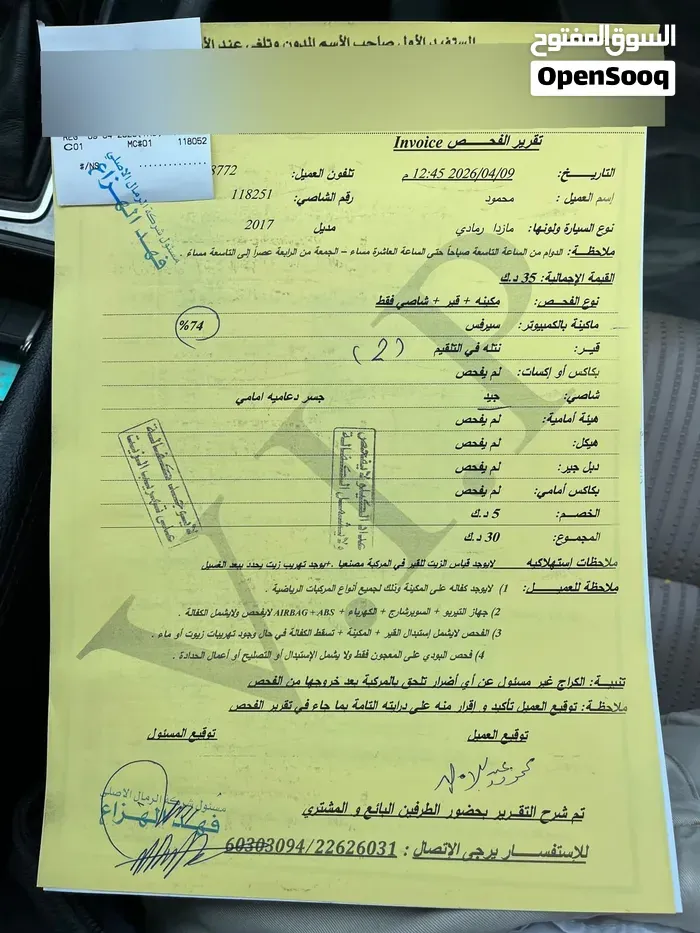 السوق المفتوح
OpenSooq
المستفيد الأول صاحب الأسم المدون وتلغى عند
C01 MC#01 118052
#/NS
تقرير الفحص Invoice
التاريخ: 2026/04/09 12:45 م تلفون العميل: 8772
إسم العميل : محمود رقم الشاصي: 118251
نوع السيارة ولونها: مازدا رمادي مديل 2017
ملاحظة: الدوام من الساعة التاسعة صباحاً حتى الساعة العاشرة مساء - الجمعة من الرابعة عصراً إلى التاسعة مساء
القيمة الإجمالية: 35 د.ك
نوع الفحص: مكينه + قير + شاصي فقط
ماكينة بالكمبيوتر: سيرفس %74
قير: نتله في التلقيم (2)
بكاكس أو إكسات: لم يفحص
شاصي: جيد جسر دعاميه امامي
هيئة أمامية: لم يفحص
هيكل: لم يفحص
دبل جير: لم يفحص
بكاكس أمامي: لم يفحص
الخصم: 5 د.ك
المجموع: 30 د.ك
عداد الكيلو لايفحص
ولايشمل الكفالة
لايوجد كفالة
على تهريب الزيت
ملاحظات إستهلاكيه لايوجد قياس الزيت للقير في المركبة مصنعيا .+يوجد تهريب زيت يحدد ببعد الغسيل
ملاحظة للعميل: 1) لايوجد كفاله على المكينة وذلك لجميع أنواع المركبات الرياضية .
2) جهاز التيربو + السوبرشارج + الكهرباء + AIRBAG + ABS لايفحص ولايشمل الكفالة .
3) الفحص لايشمل إستبدال القير + المكينة + تسقط الكفالة في حال وجود تهريبات زيوت أو ماء .
4) فحص البودي على المعجون فقط ولا يشمل الإستبدال أو التصليح أو أعمال الحدادة .
تنبية: الكراج غير مسئول عن أي أضرار تلحق بالمركبة بعد خروجها من الفحص
ملاحظة: توقيع العميل تأكيد و إقرار منه على درايته التامة بما جاء في تقرير الفحص
توقيع العميل توقيع المسئول
تم شرح التقرير بحضور الطرفين البائع و المشتري
للإستفسار يرجى الإتصال : 60303094/22626031
مسئول شركة الرمال الاصلي
فهد الهزاع
مسئول شركة الرمال الاصلي
فهد الهزاع
V.I.P